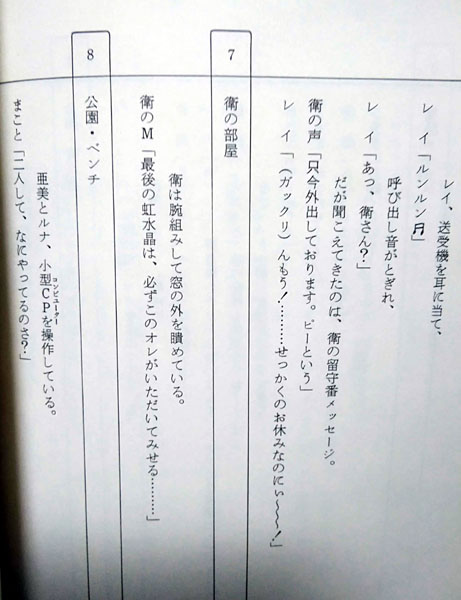 レイ、送受機を耳に当て、
レイ「ルンルン♬」
呼び出し音がとぎれ、
レイ「あっ、衛さん？」
だが聞こえてきたのは、衛の留守番メッセージ。
衛の声「只今外出しております。ピーという」
レイ「（ガックリ）んもう！………せっかくのお休みなのにぃ～～～！」
7 衛の部屋
衛は腕組みして窓の外を瞶めている。
衛のM「最後の虹水晶は、必ずこのオレがいただいてみせる………」
8 公園・ベンチ
亜美とルナ、小型CPを操作している。
コンピューター
まこと「二人して、なにやってるのさ？」